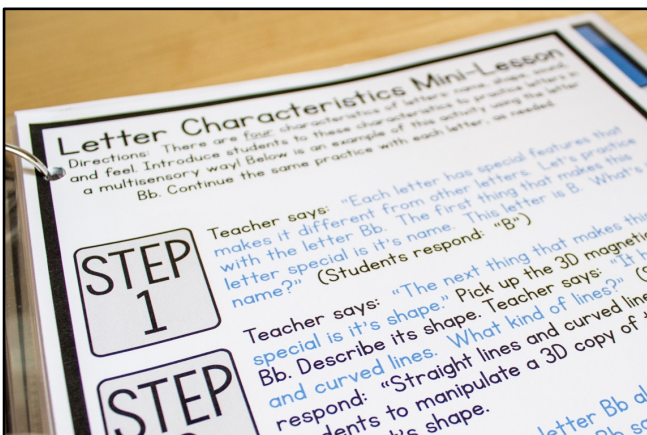 Letter Characteristics Mini-Lesson
Directions: There are four characteristics of letters: name, shape, sound
and feel. Introduce students to these characteristics to practice letters in
a multisensory way! Below is an example of this activity using the letter
Bb. Continue the same practice with each letter, as needed.
STEP
1
Teacher says: "Each letter has special features that
makes it different from other letters. Let's practice
with the letter Bb. The first thing that makes this
letter special is it's name. This letter is B. What's
name?" (Students respond: "B")
STEP
Teacher says: "The next thing that makes this
special is it's shape." Pick up the 3D magnetic
Bb. Describe its shape. Teacher says: "It
and curved lines. What kind of lines?"
respond: "Straight lines and curved lines
to manipulate a 3D copy of
shape.
letter Bb